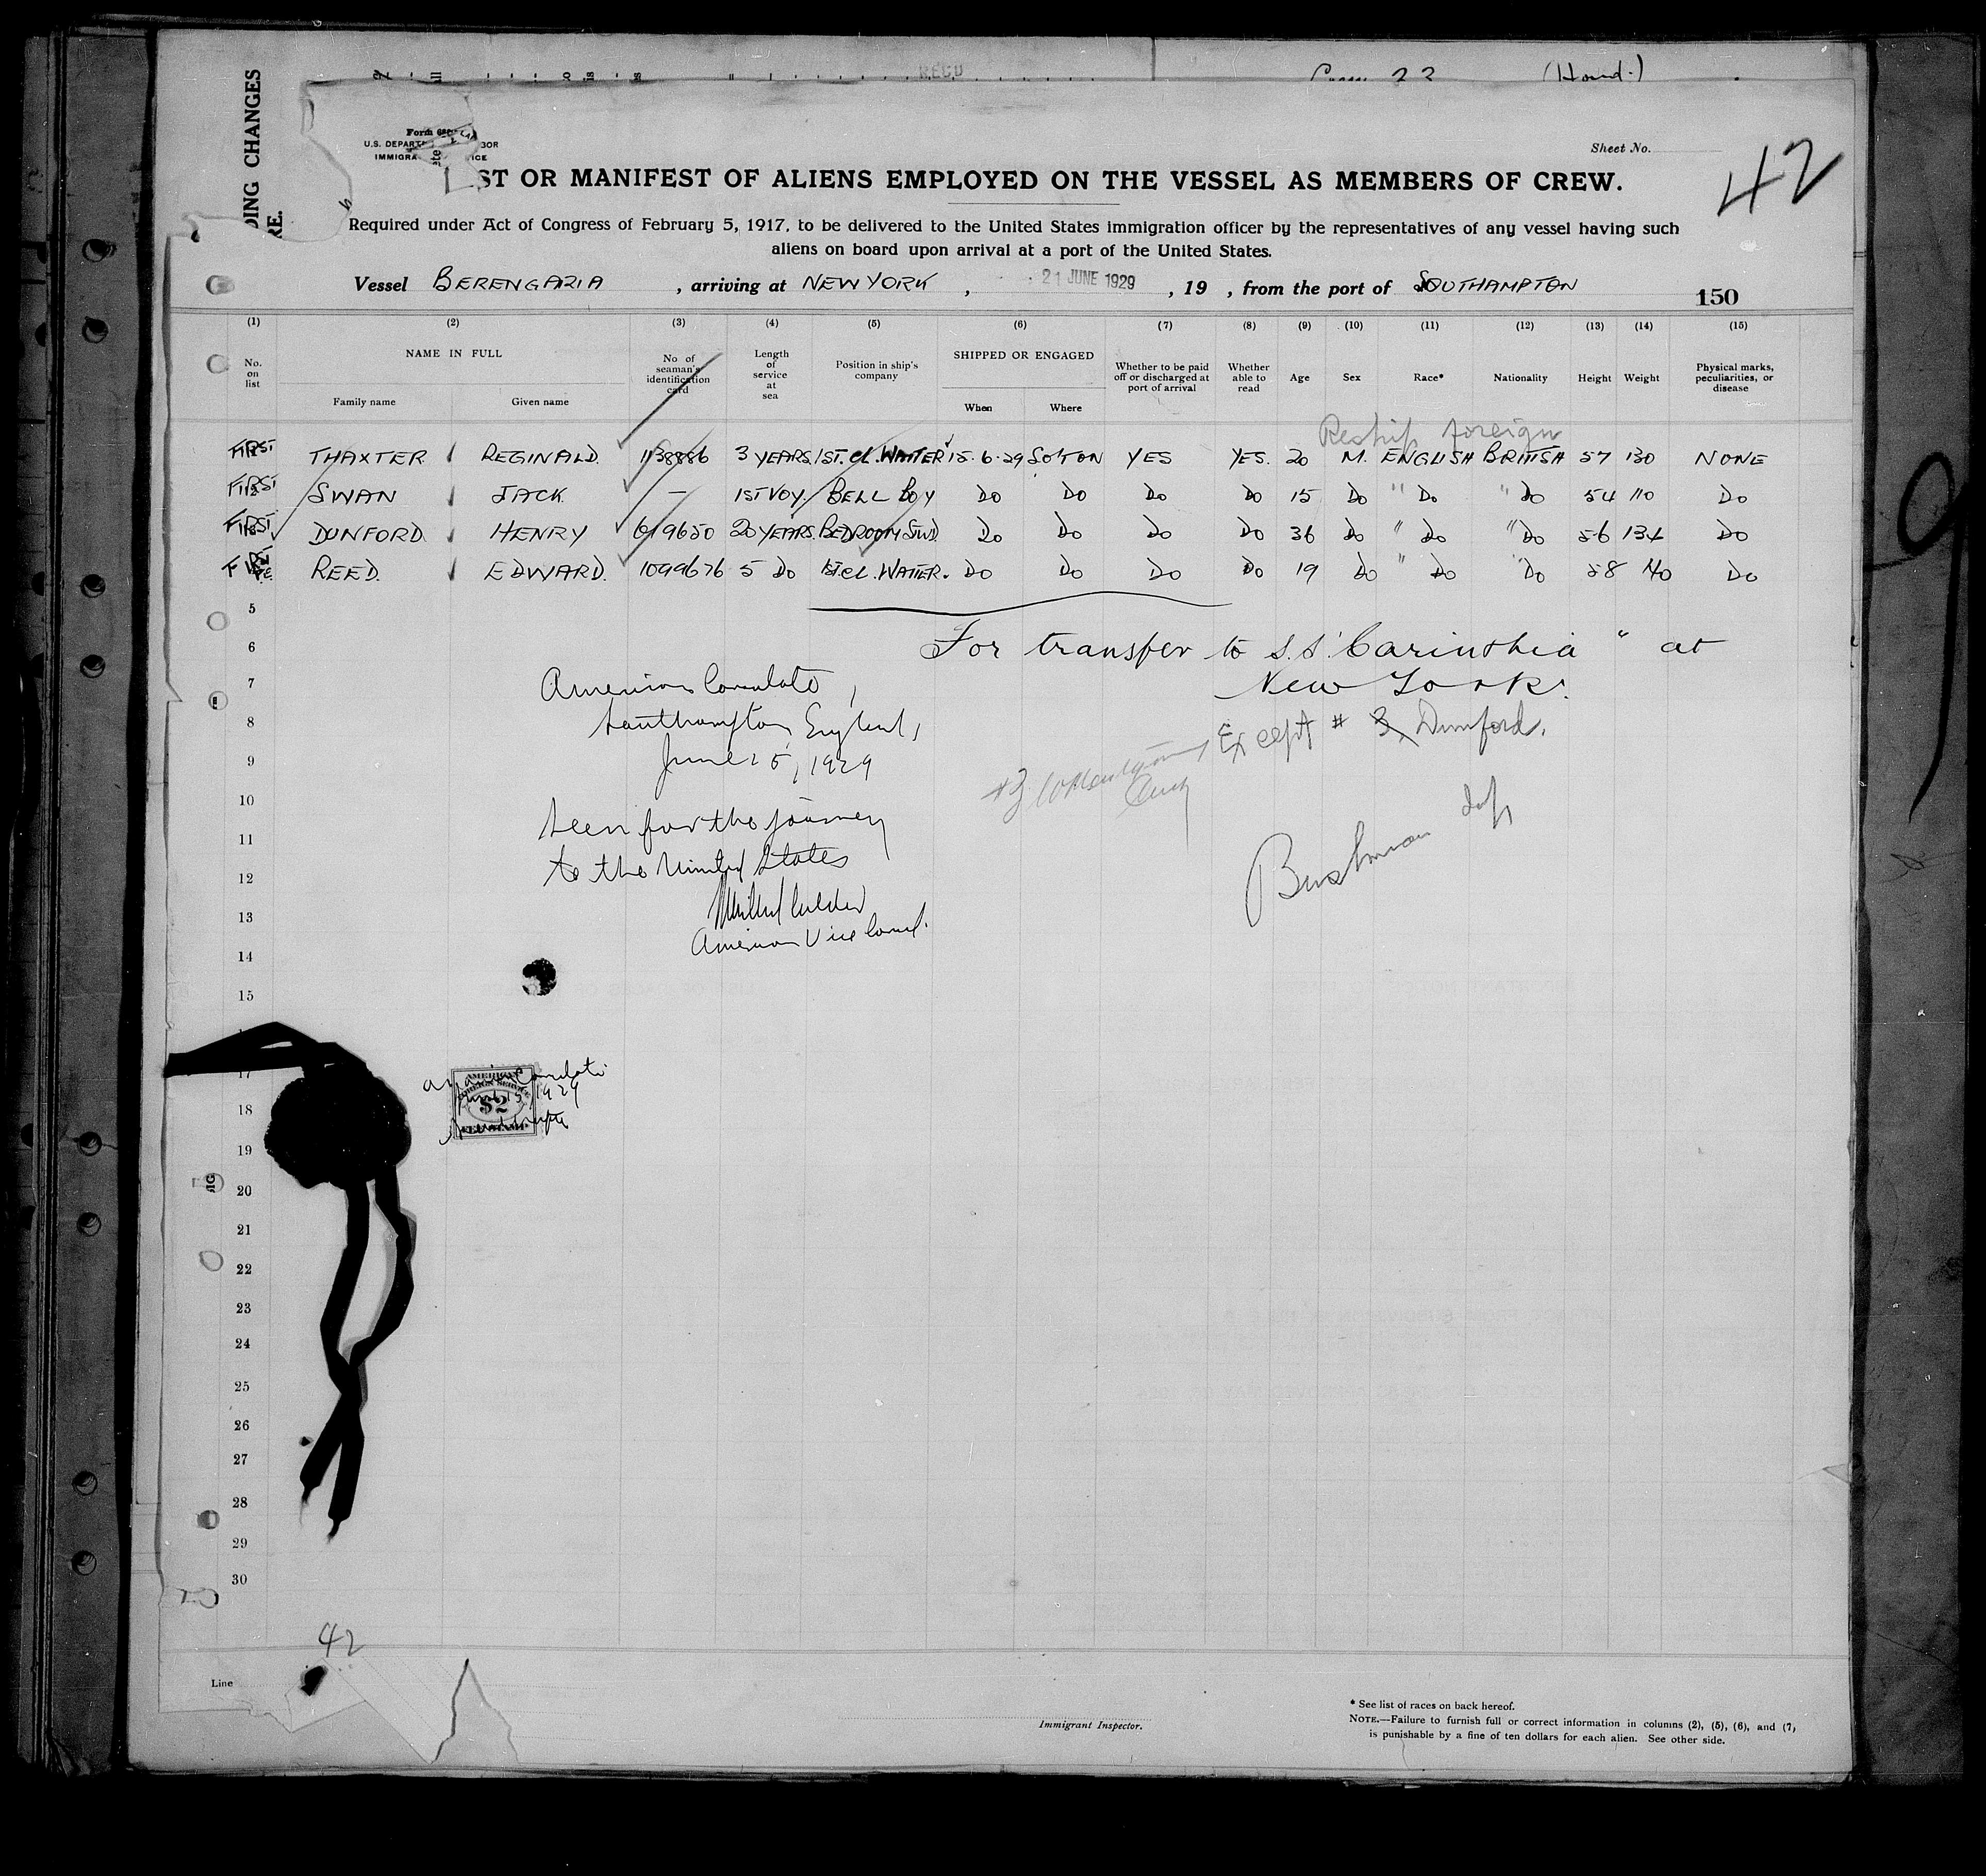 DING CHANGES
RE.
RECD
(Hond.)
Form 680
U.S. DEPARTMENT LABOR
IMMIGRA ICE
Sheet No.
42
ST OR MANIFEST OF ALIENS EMPLOYED ON THE VESSEL AS MEMBERS OF CREW.
Required under Act of Congress of February 5, 1917, to be delivered to the United States immigration officer by the representatives of any vessel having such
aliens on board upon arrival at a port of the United States.
Vessel BERENGARIA , arriving at NEW YORK , 21 JUNE 1929 , 19 , from the port of SOUTHAMPTON
150
(1) (2) (3) (4) (5) (6) (7) (8) (9) (10) (11) (12) (13) (14) (15)
No. on list NAME IN FULL Family name Given name No of seaman's identification card Length of service at sea Position in ship's company SHIPPED OR ENGAGED When Where Whether to be paid off or discharged at port of arrival Whether able to read Age Sex Race* Nationality Height Weight Physical marks, peculiarities, or disease
Reship foreign
FIRST THAXTER REGINALD. 1138886 3 YEARS 1ST. CL. WAITER 15.6.29 SO'TON YES YES. 20 M. ENGLISH BRITISH 57 130 NONE
FIRST SWAN JACK – 1ST VOY. BELL BOY DO DO DO DO 15 DO " DO " DO 54 110 DO
FIRST DUNFORD HENRY 619650 20 YEARS. BEDROOM STWD. DO DO DO DO 36 DO " DO " DO 56 134 DO
FIRST REED. EDWARD. 1099676 5 DO 1ST. CL. WAITER. DO DO DO DO 19 DO " DO " DO 58 140 DO
5
6 For transfer to S.S. "Carinthia" at
7 New York.
American Consulate,
8 Southampton, England,
Except # 3, Dunford.
9 June 15, 1929
10
Seen for the journey
11
to the United States
12
Bushman
13
American Vice Consul.
14
15
17
American Consulate
June 15, 1929
Southampton
AMERICAN
FOREIGN SERVICE
$2
FEE STAMP
18
19
20
21
22
23
24
25
26
27
28
29
30
42
Line
Immigrant Inspector.
* See list of races on back hereof.
NOTE.—Failure to furnish full or correct information in columns (2), (5), (6), and (7,
is punishable by a fine of ten dollars for each alien. See other side.
9